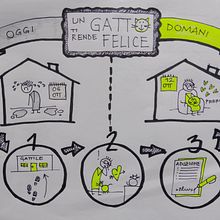 OGGI
UN GATTO
TI RENDE FELICE
DOMANI
06
OTT
12
OTT
1
2
3
GATTILE
ADOZIONE